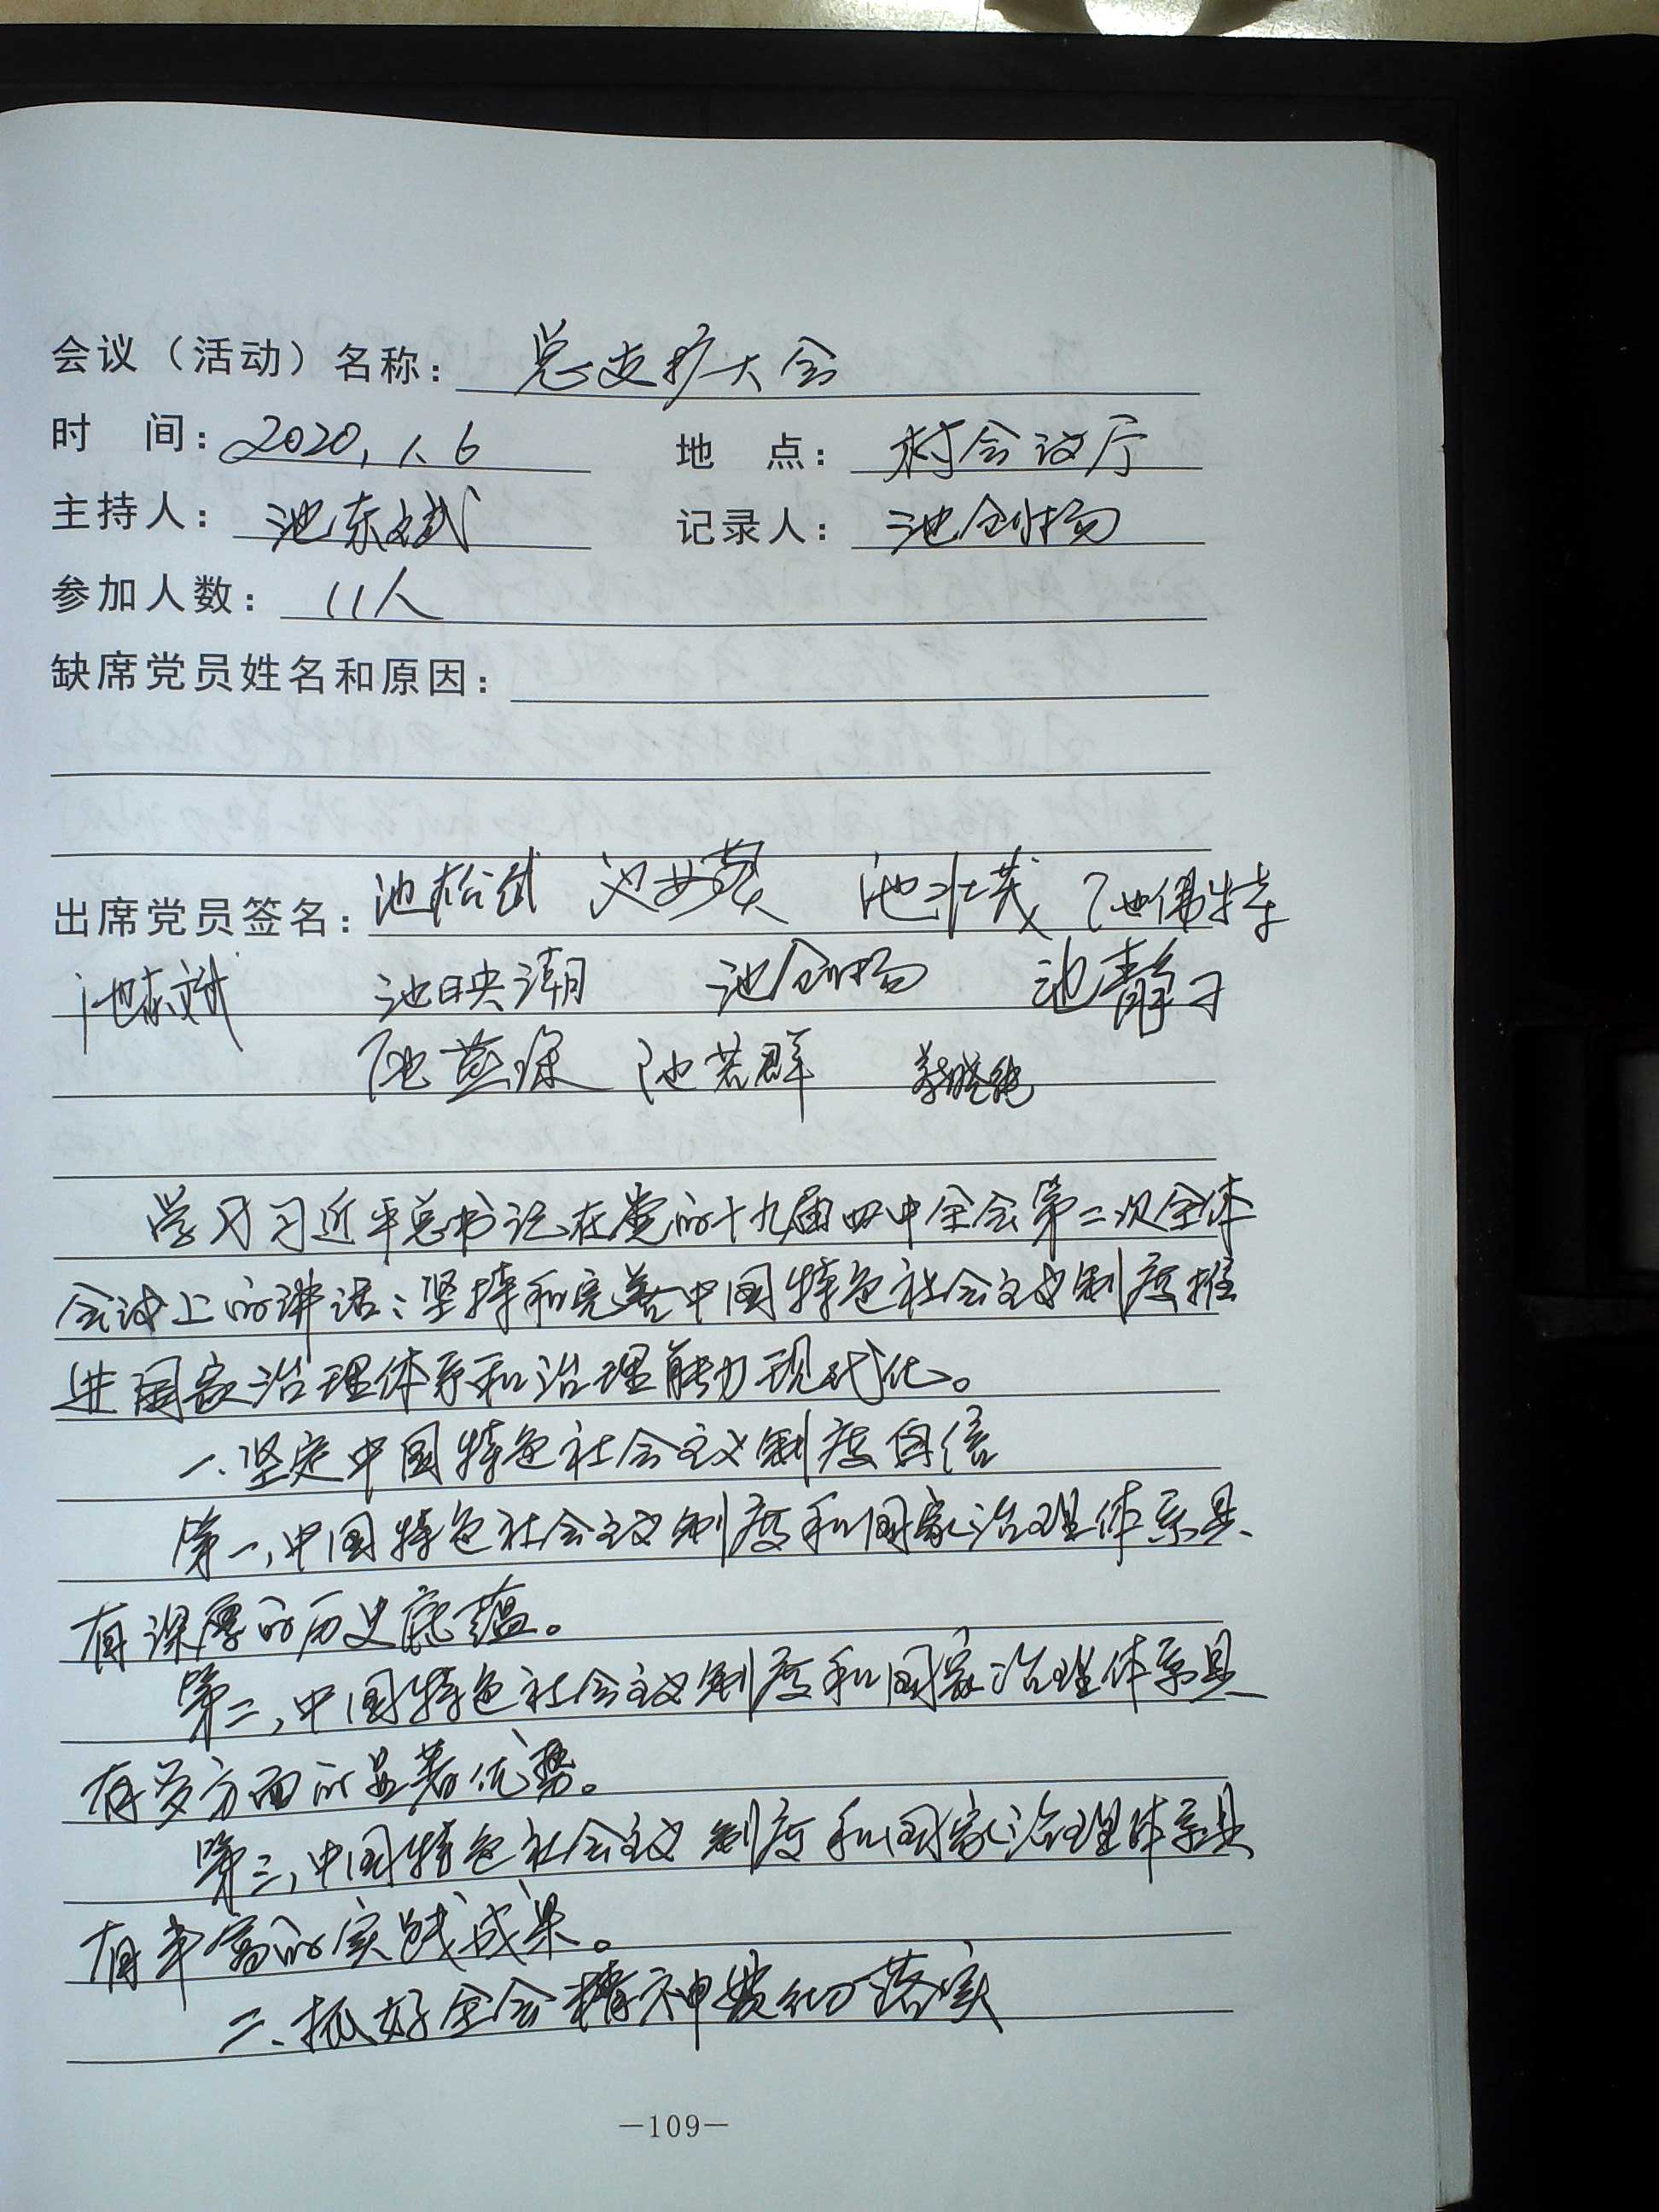 会议（活动）名称：总支扩大会
时 间：2020.1.6 地 点：村会议厅
主持人：池东斌 记录人：池创扬
参加人数：11人
缺席党员姓名和原因：
出席党员签名：池松武 池壮茂 池佛特
池东斌 池映潮 池创扬 池静子
池燕琼 池若群
学习习近平总书记在党的十九届四中全会第二次全体
会议上的讲话：坚持和完善中国特色社会主义制度推
进国家治理体系和治理能力现代化。
一、坚定中国特色社会主义制度自信
第一，中国特色社会主义制度和国家治理体系具
有深厚的历史底蕴。
第二，中国特色社会主义制度和国家治理体系具
有多方面的显著优势。
第三，中国特色社会主义制度和国家治理体系具
有丰富的实践成果。
二、抓好全会精神贯彻落实
—109—